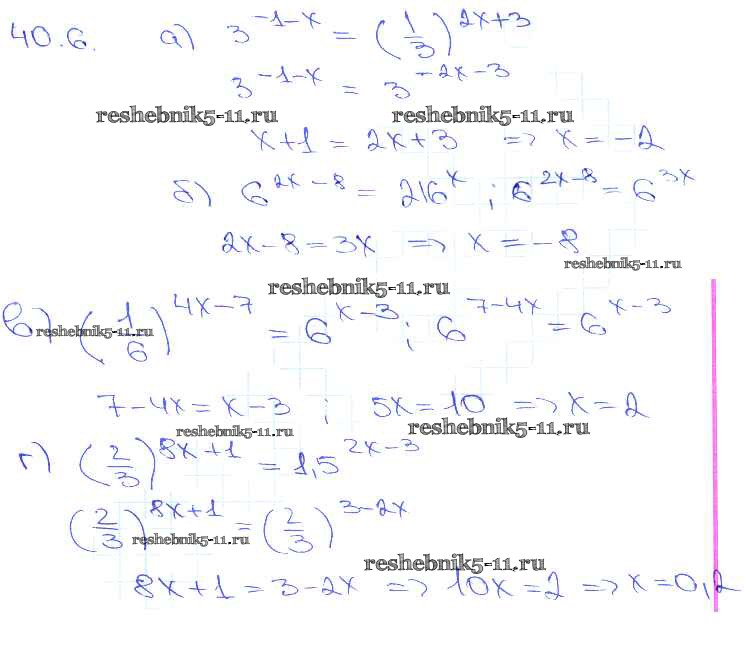 40.6. а) 3^{-1-x} = (1/3)^{2x+3}
3^{-1-x} = 3^{-2x-3}
reshebnik5-11.ru reshebnik5-11.ru
x+1 = 2x+3 => x = -2
б) 6^{2x-8} = 216^x ; 6^{2x-8} = 6^{3x}
2x-8 = 3x => x = -8
reshebnik5-11.ru
reshebnik5-11.ru
в) (1/6)^{4x-7} = 6^{x-3} ; 6^{7-4x} = 6^{x-3}
reshebnik5-11.ru
7-4x = x-3 ; 5x = 10 => x = 2
reshebnik5-11.ru reshebnik5-11.ru
г) (2/3)^{8x+1} = 1,5^{2x-3}
(2/3)^{8x+1} = (2/3)^{3-2x}
reshebnik5-11.ru
reshebnik5-11.ru
8x+1 = 3-2x => 10x = 2 => x = 0,2